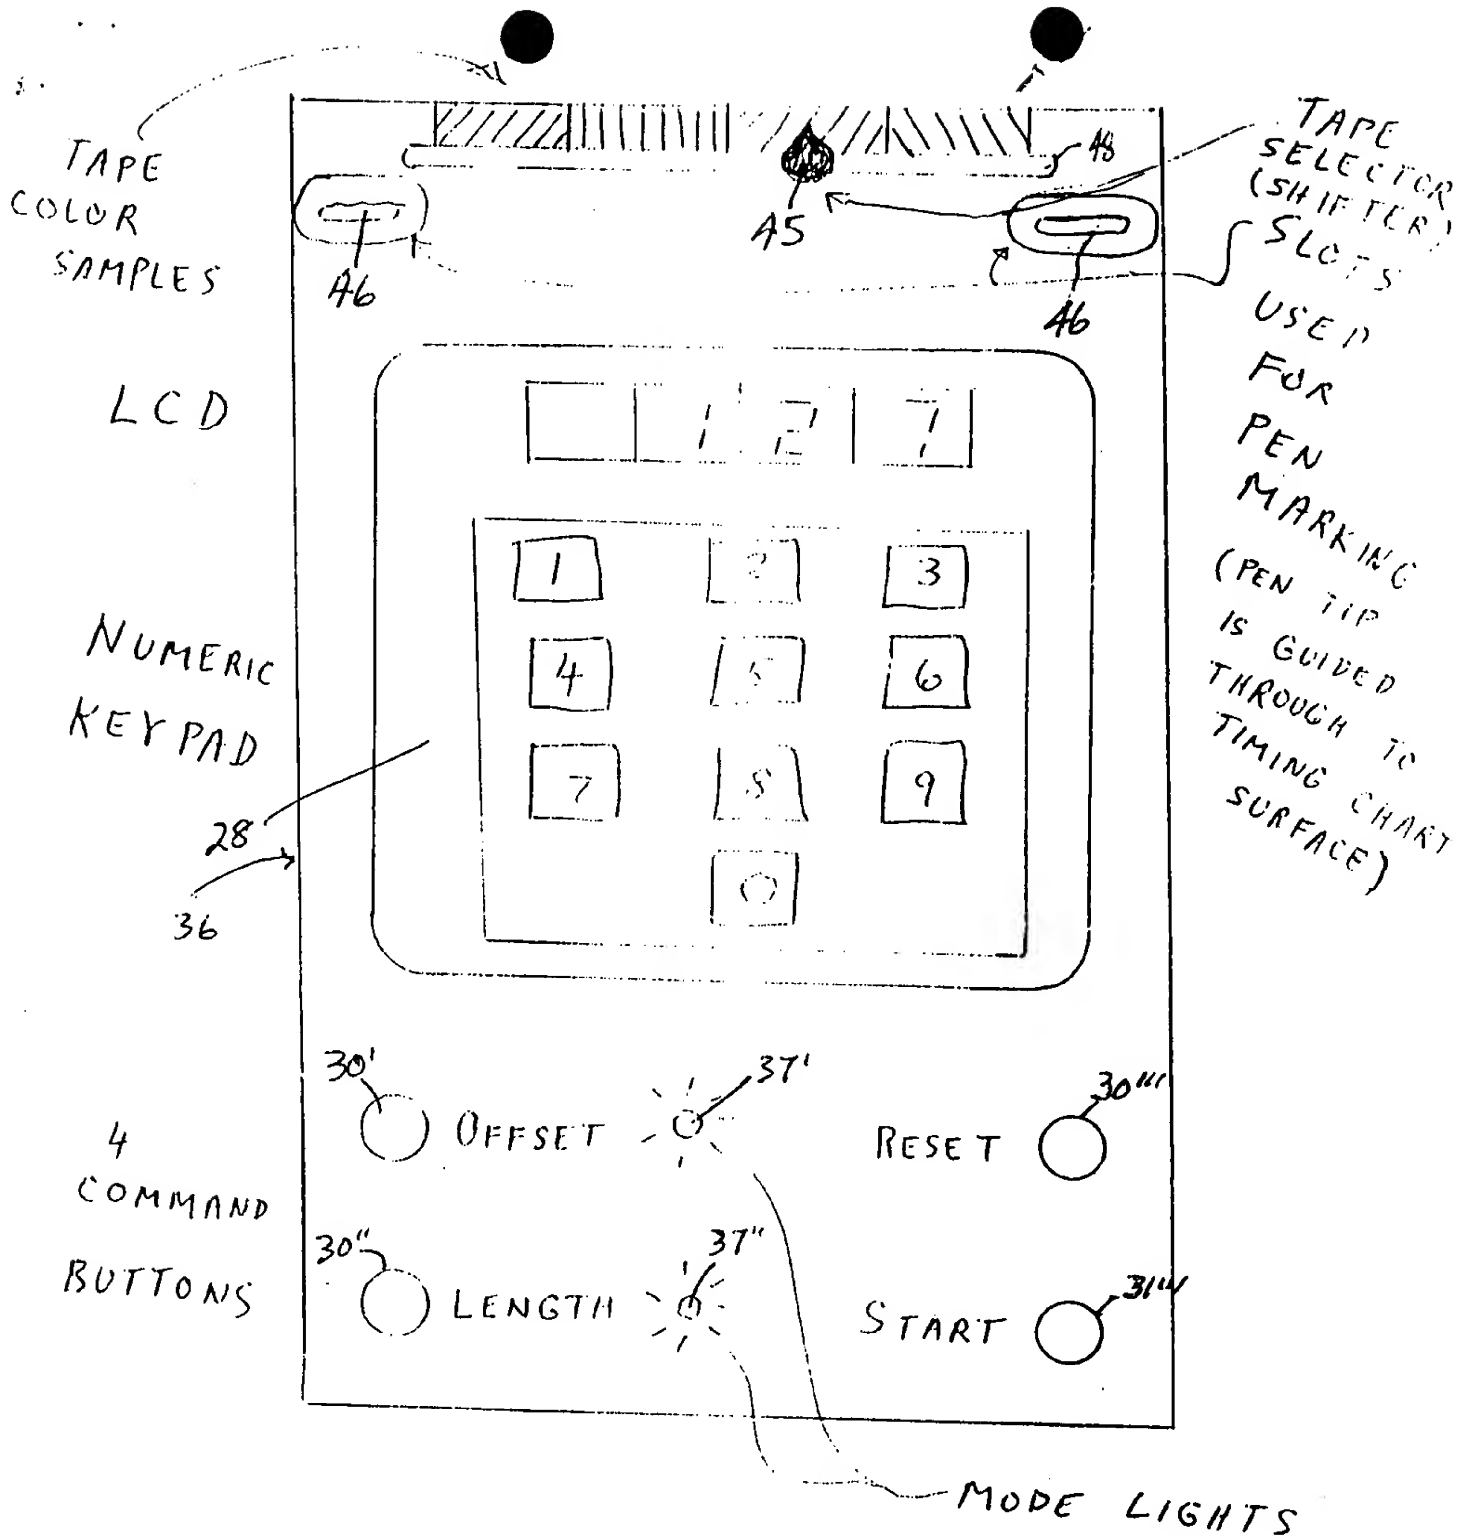 TAPE
COLOR
SAMPLES
TAPE
SELECTOR
(SHIFTER)
SLOTS
USED
FOR
PEN
MARKING
(PEN TIP
IS GUIDED
THROUGH TO
TIMING CHART
SURFACE)
48
45
46
46
LCD
1 2 7
1 2 3
4 5 6
7 8 9
0
NUMERIC
KEYPAD
28
36
4
COMMAND
BUTTONS
30'
OFFSET
37'
RESET
30'''
30''
LENGTH
37''
START
31''''
MODE LIGHTS